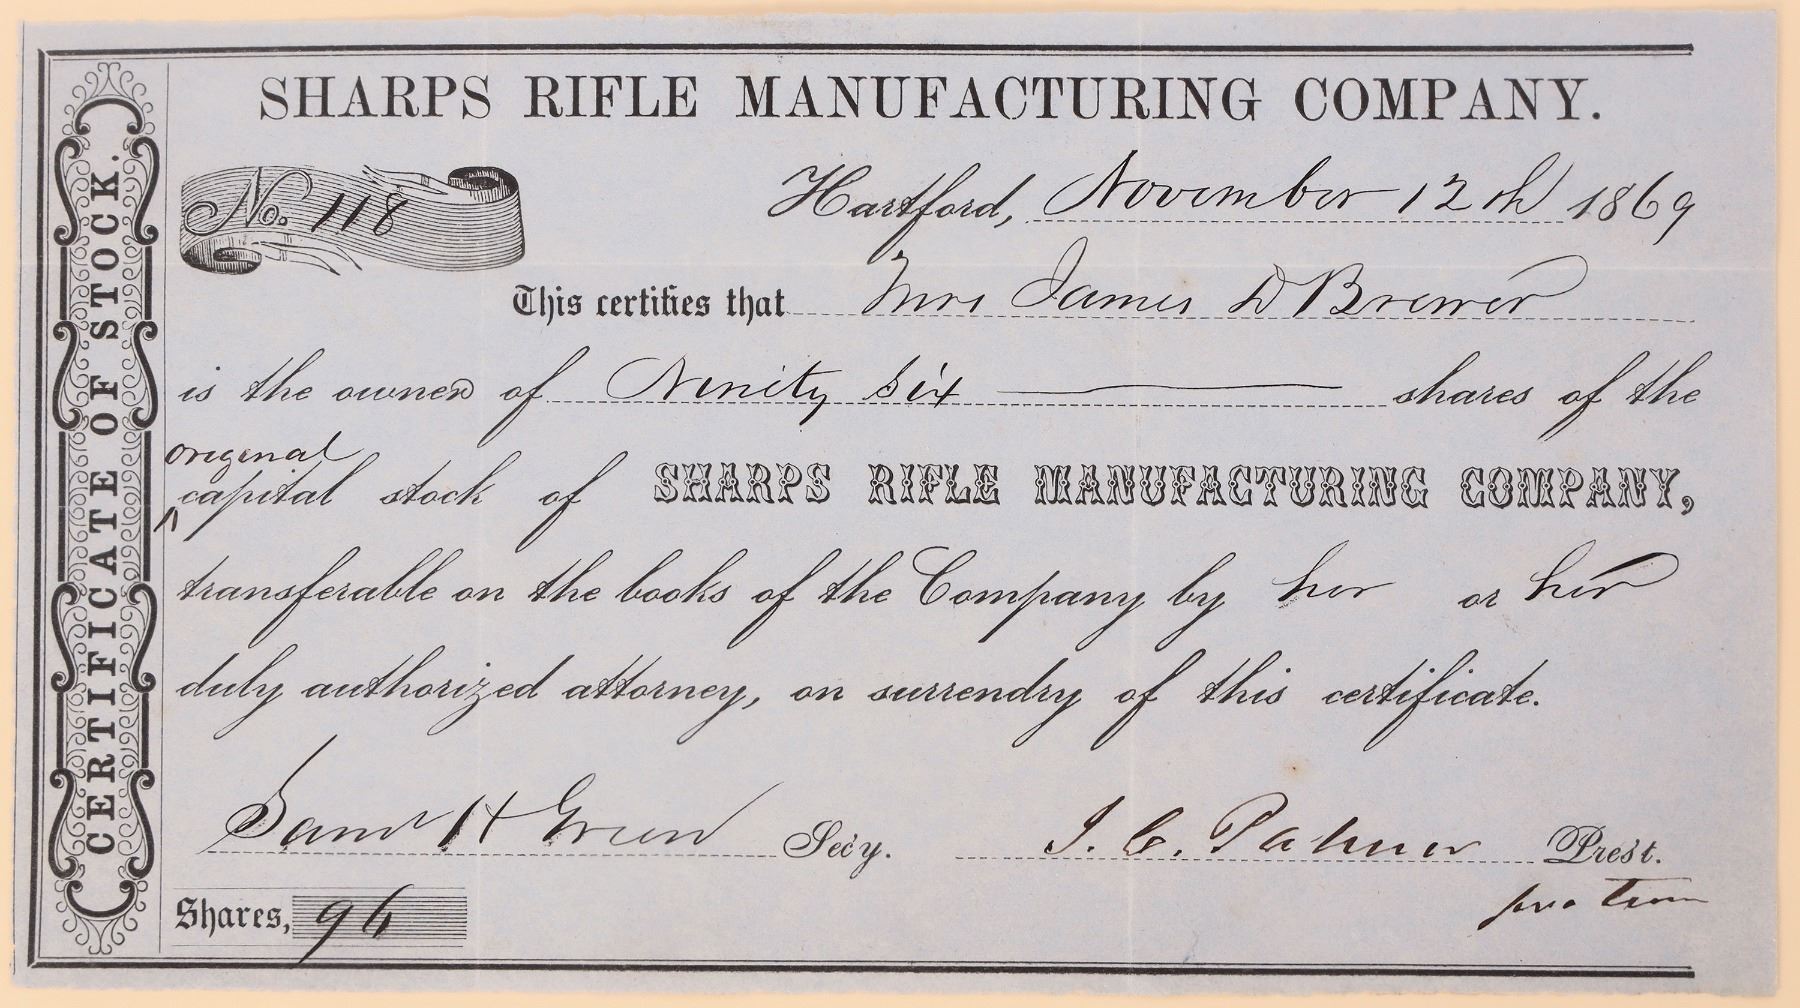 CERTIFICATE OF STOCK.
SHARPS RIFLE MANUFACTURING COMPANY.
No. 118
Hartford, November 12th 1869
This certifies that Mrs James D Brewer
is the owner of Ninity six shares of the
original
capital stock of SHARPS RIFLE MANUFACTURING COMPANY,
transferable on the books of the Company by her or her
duly authorized attorney, on surrendry of this certificate.
Saml H Green Sec'y. J. C. Palmer Pres't.
pro tem
Shares, 96